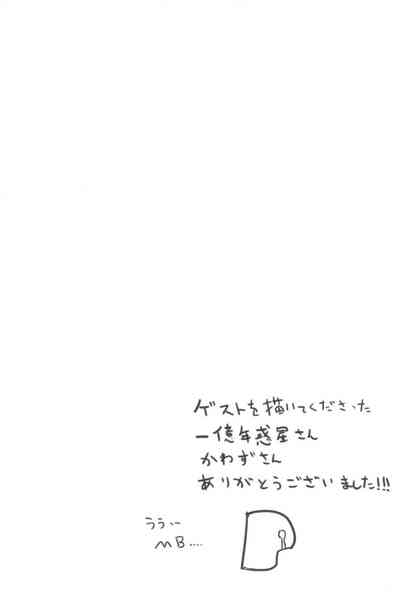 ゲストを描いてくださった
一億年惑星さん
かわずさん
ありがとうございました!!!
ううぃー
MB....